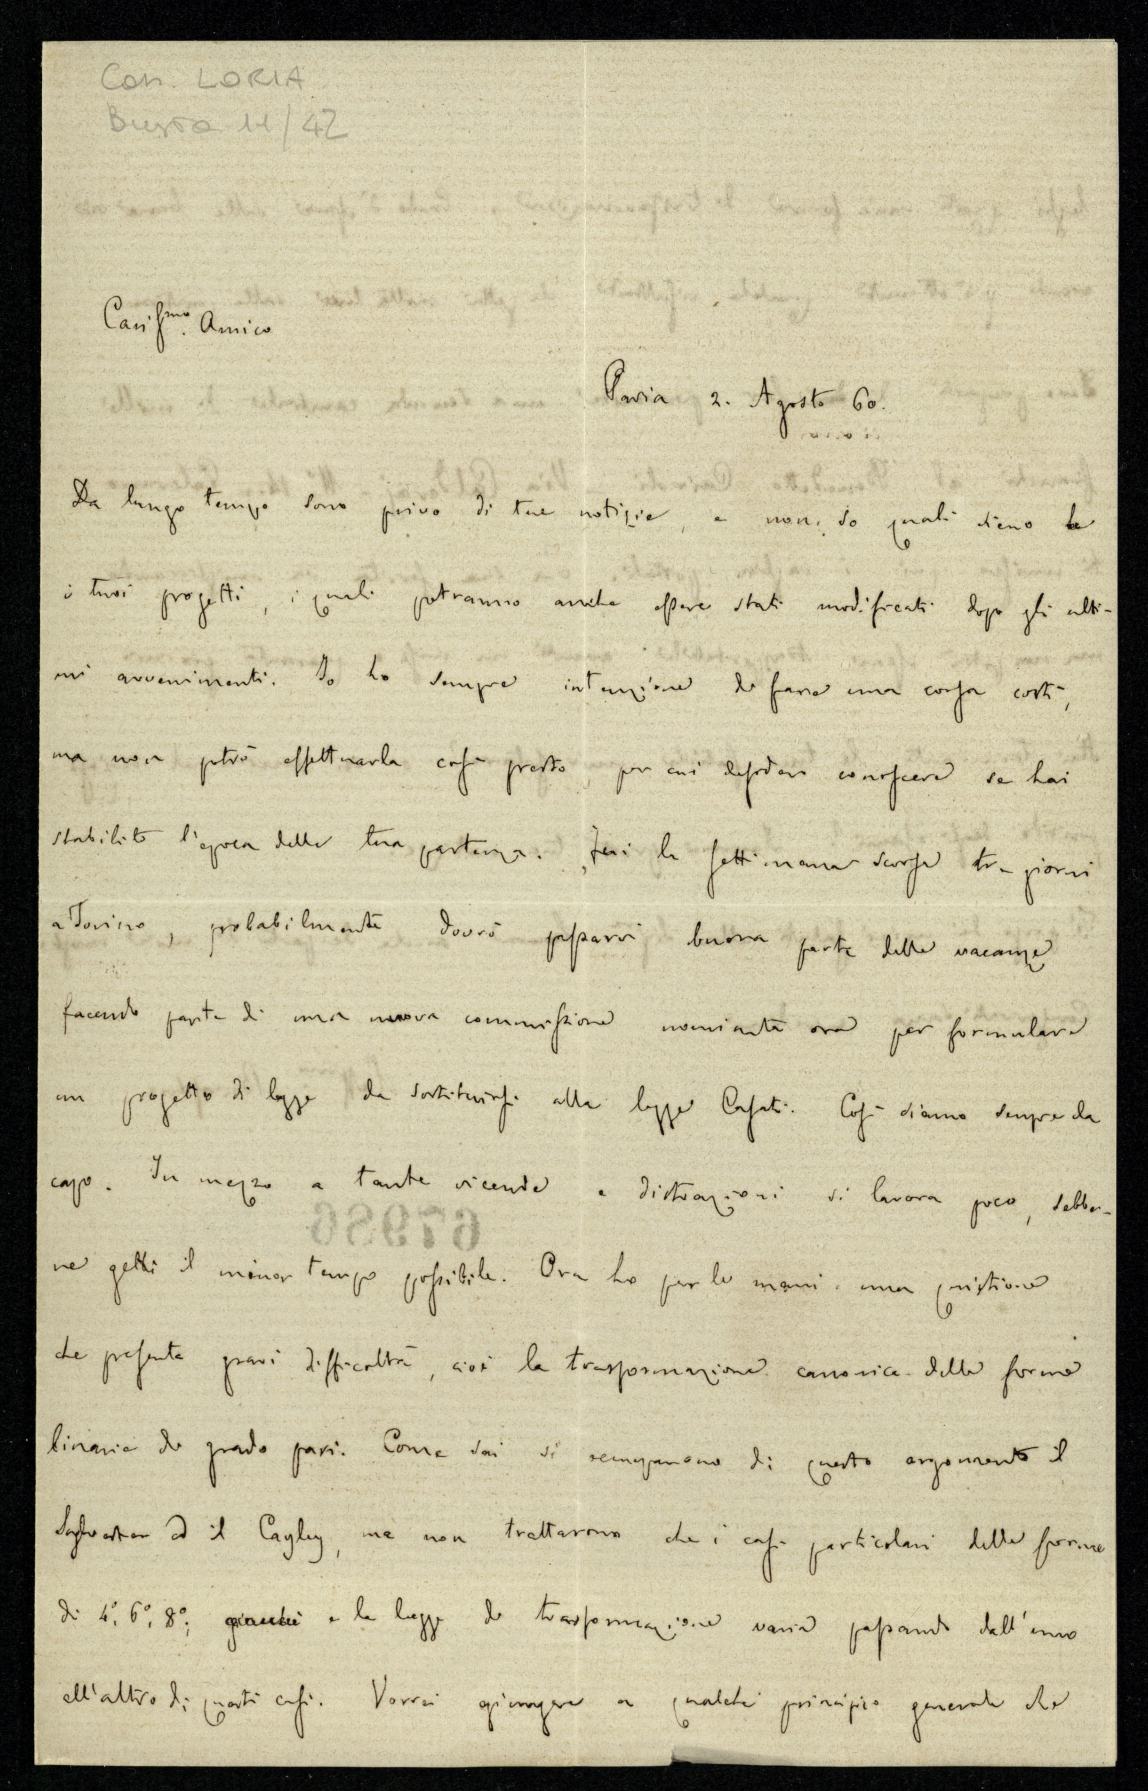 Con. LORIA
Busta 11/42
Cariss.mo Amico
Pavia 2. Agosto 60.
Da lungo tempo sono privo di tue notizie, e non so quali sieno
i tuoi progetti, i quali potranno anche essere stati modificati dopo gli ulti-
mi avvenimenti. Io ho sempre intenzione di fare una corsa costì,
ma non potrò effettuarla così presto, per cui desidero conoscere se hai
stabilito l'epoca della tua partenza. Fui la settimana scorsa tre giorni
a Torino, probabilmente dovrò passarvi buona parte delle vacanze
facendo parte di una nuova commissione nominata ora per formulare
un progetto di legge da sostituirsi alla legge Casati. Così siamo sempre da
capo. In mezzo a tante vicende e distrazioni si lavora poco, sebbe-
ne getti il minor tempo possibile. Ora ho per le mani una quistione
che presenta gravi difficoltà, cioè la trasformazione canonica delle forme
binarie di grado pari. Come sai si occuparono di questo argomento il
Sylvester ed il Cayley, ma non trattarono che i casi particolari delle forme
di 4°, 6°, 8°; e la legge di trasformazione varia passando dall'uno
all'altro di questi casi. Vorrei giungere a qualche principio generale che
67986